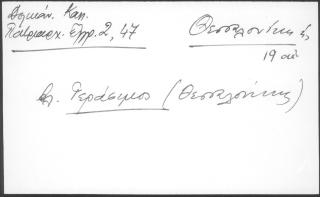 Δηκάν. Καλ.
Πατριαρχ. Έγγρ. 2, 47
Θεσσαλονίκης
19 αἰ.
βλ. Γεράσιμος (Θεσσαλονίκης)